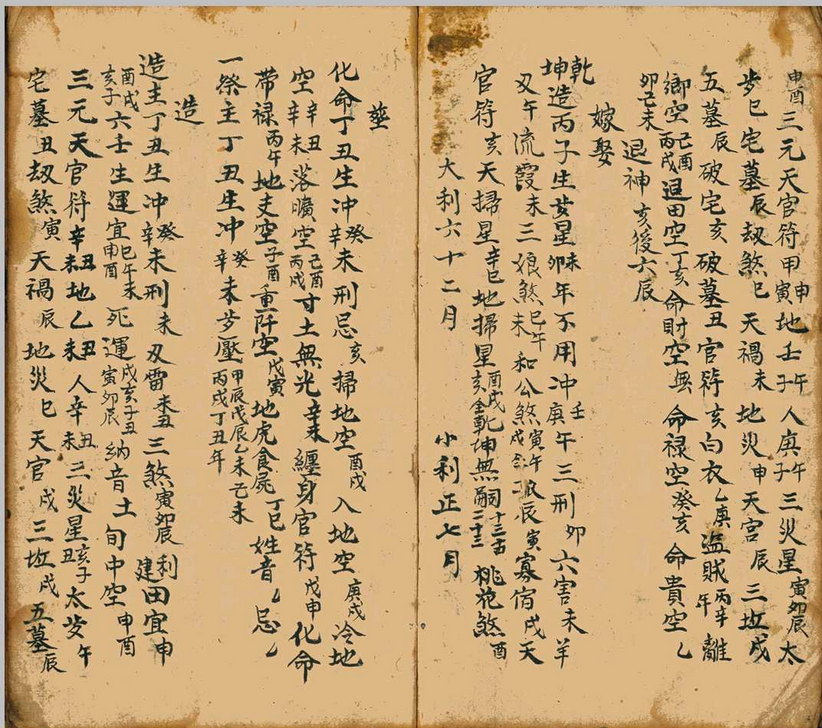 申酉三元天官符甲申寅地壬午子人庚午子三災星寅卯辰太
歩巳宅墓辰劫煞巳天禍未地災申天官辰三坵戌
五墓辰破宅亥破墓丑官符亥白衣乙庚盗賊丙辛午離
鄉空己酉丙戌退田空丁亥命財空無命禄空癸亥命貴空乚
卯己未退神亥後六辰
嫁娶
乾坤造丙子生女星未卯年不用冲壬庚午三刑卯六害未羊
刄午流霞未三娘煞巳午和公煞寅午戌辰寅寡宿戌天
官符亥天掃星辛巳地掃星酉戌亥乾坤無嗣十三二十三桃花煞酉
大利六十二月 小利正七月
塟
化命丁丑生冲癸辛未刑忌亥掃地空酉戌入地空庚戌冷地
空辛丑辛未落曠空己酉丙戌寸土無光辛未纏身官符戊申化命
帶禄丙午地支空子酉重阡空戊寅地虎食屍丁巳姓音乚忌乚
一祭主丁丑生冲癸辛未歩壓甲辰戊辰乙未己未丙戌丁丑年
造
造主丁丑生冲癸辛未刑未刄雷未丑三煞寅卯辰利建田宜申
酉戌亥子六壬生運宜巳午未申酉死運戌亥子丑寅卯辰納音土旬中空申酉
三元天官符辛丑未地乙丑未人辛丑未三災星亥子丑太歩午
宅墓丑劫煞寅天禍辰地災巳天官戌三坵戌五墓辰